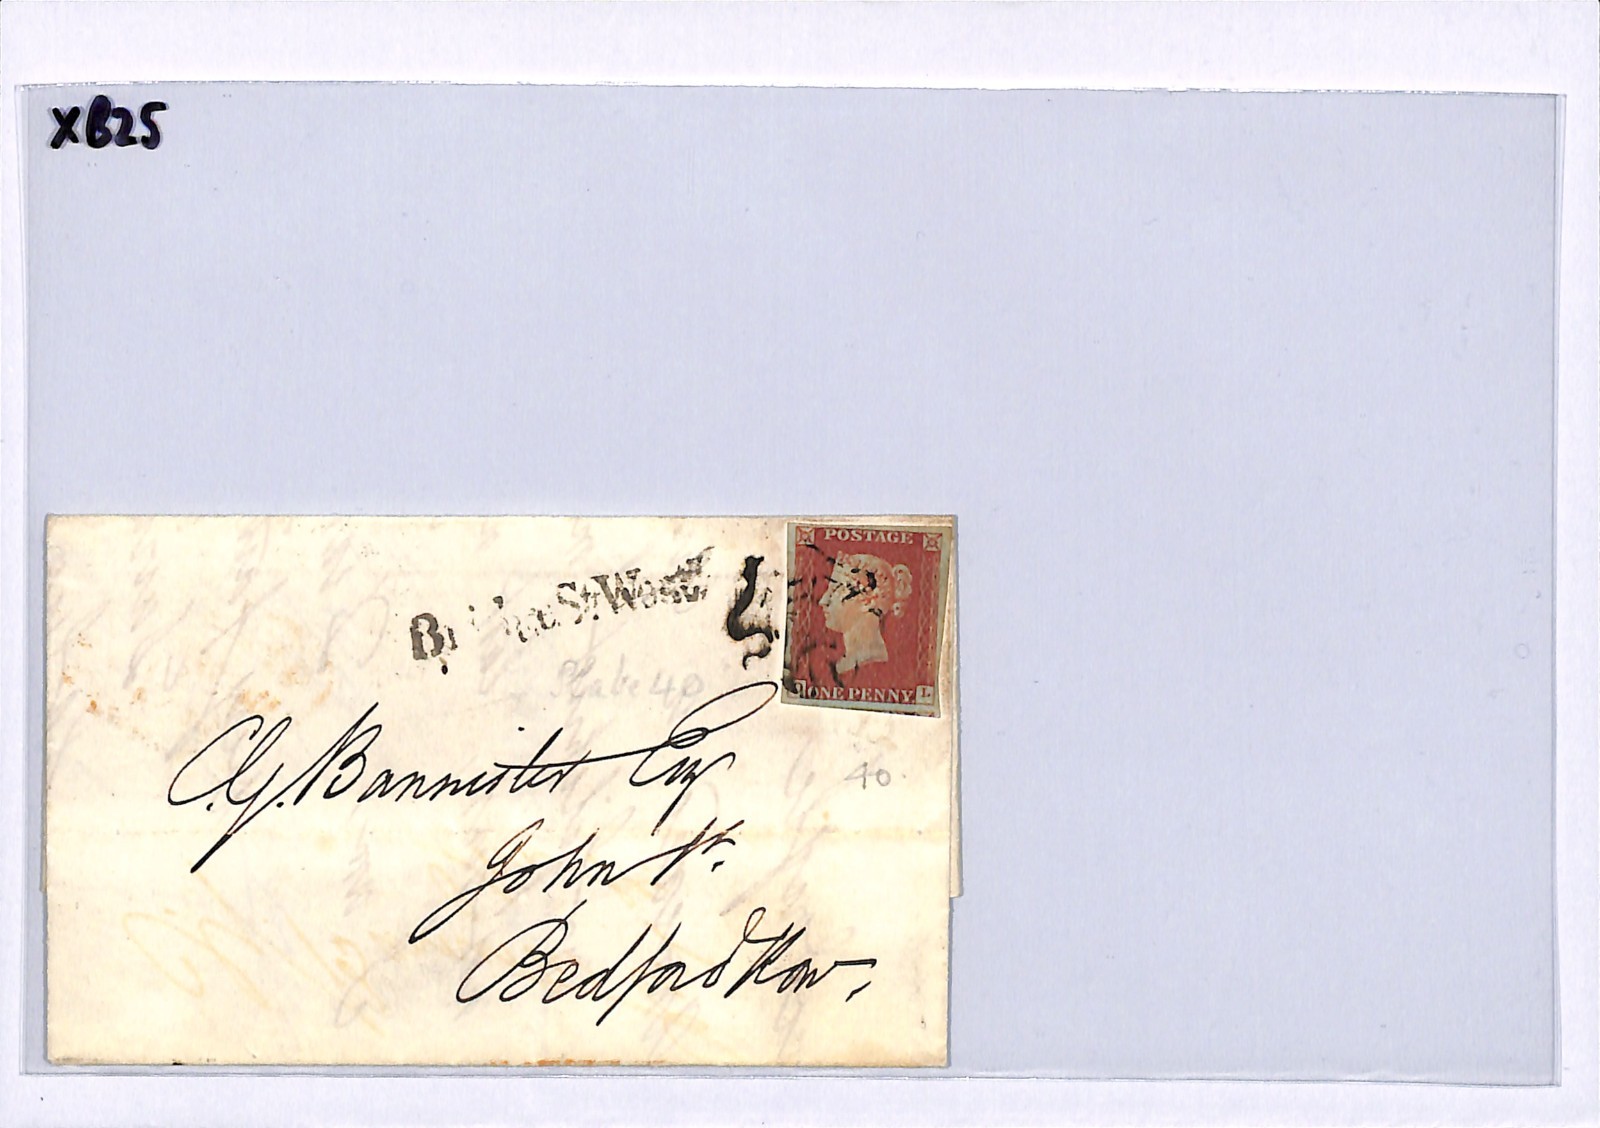 XB25
St. West
POSTAGE
ONE PENNY L
Plate 40
C.G. Bannister Esq
40
John St.
Bedford Row.